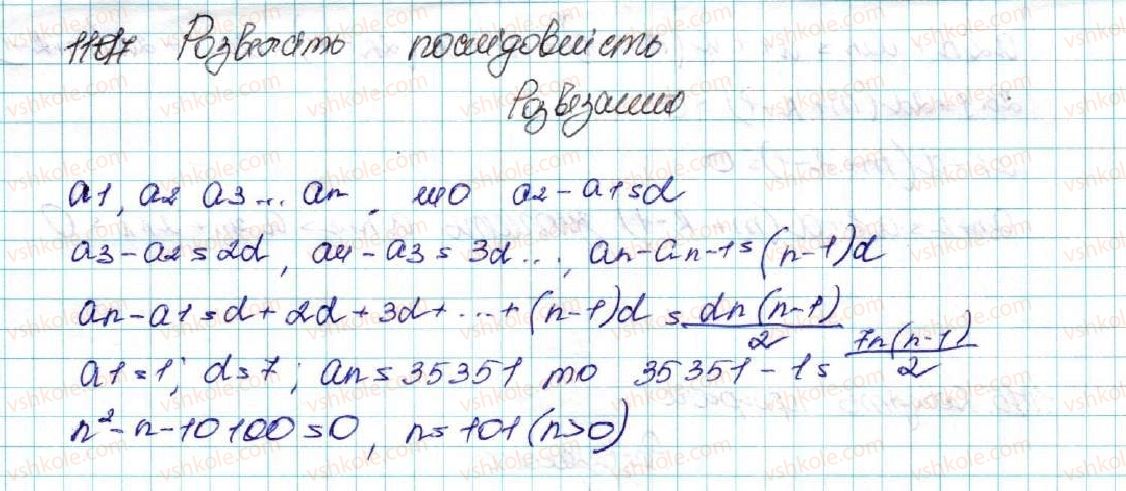 Розвяжіть послідовність
Розвязання
a1, a2 a3... an. що a2 - a1 = d
a3 - a2 = 2d, a4 - a3 = 3d..., an - an-1 = (n-1)d
an - a1 = d + 2d + 3d + ... + (n-1)d = dn(n-1)/2
a1 = 1; d = 7; an = 35351 то 35351 - 1 = 7n(n-1)/2
n² - n - 10100 = 0, n = 101 (n>0)
vshkole.com